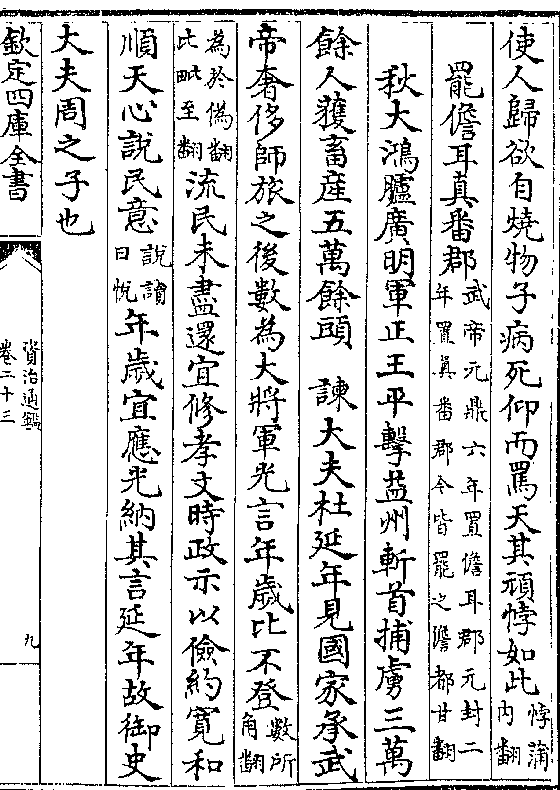 使人歸欲自燒物子病死仰而罵天其頑悖如此悖蒲内翻
罷儋耳真番郡武帝元鼎六年置儋耳郡元封二年置真番郡今皆罷之儋都甘翻
秋大鴻臚廣明軍正王平擊益州斬首捕虜三萬
餘人獲畜産五萬餘頭 諫大夫杜延年見國家承武
帝奢侈師旅之後數為大將軍光言年歲比不登數所角翻
為於偽翻比毗至翻流民未盡還宜修孝文時政示以儉約寛和
順天心說民意說讀曰悅年歲宜應光納其言延年故御史
大夫周之子也
欽定四庫全書
資治通鑑
卷二十三
九